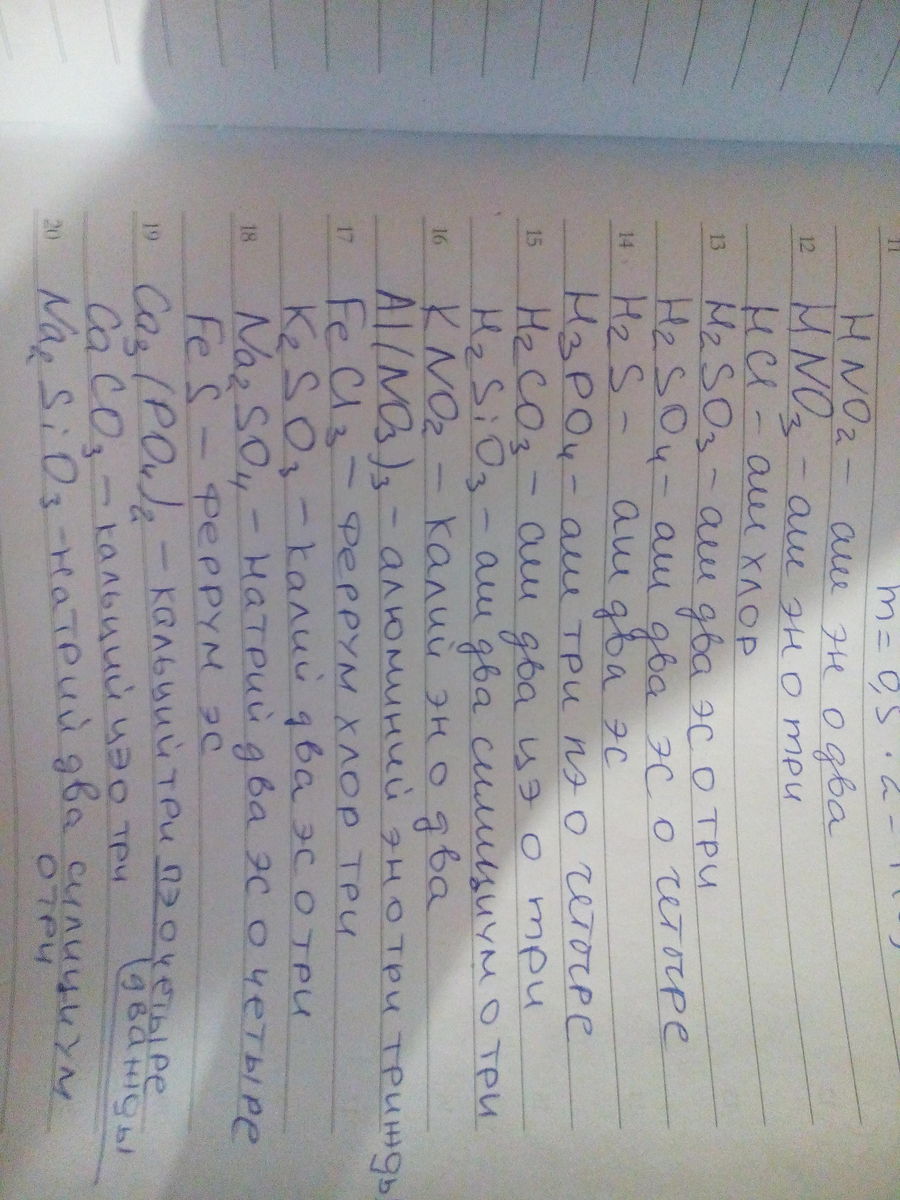 m = 0,5 · 2 -
11
HNO2 - аш эн о два
12 HNO3 - аш эн о три
HCl - аш хлор
13 H2SO3 - аш два эс о три
H2SO4 - аш два эс о четыре
14 H2S - аш два эс
H3PO4 - аш три пэ о четыре
15 H2CO3 - аш два цэ о три
H2SiO3 - аш два силициум о три
16 KNO2 - калий эн о два
Al(NO3)3 - алюминий эн о три трижды
17 FeCl3 - феррум хлор три
K2SO3 - калий два эс о три
18 Na2SO4 - натрий два эс о четыре
FeS - феррум эс
19 Ca3(PO4)2 - кальций три пэ о четыре дважды
CaCO3 - кальций цэ о три
20 Na2SiO3 - натрий два силициум
о три